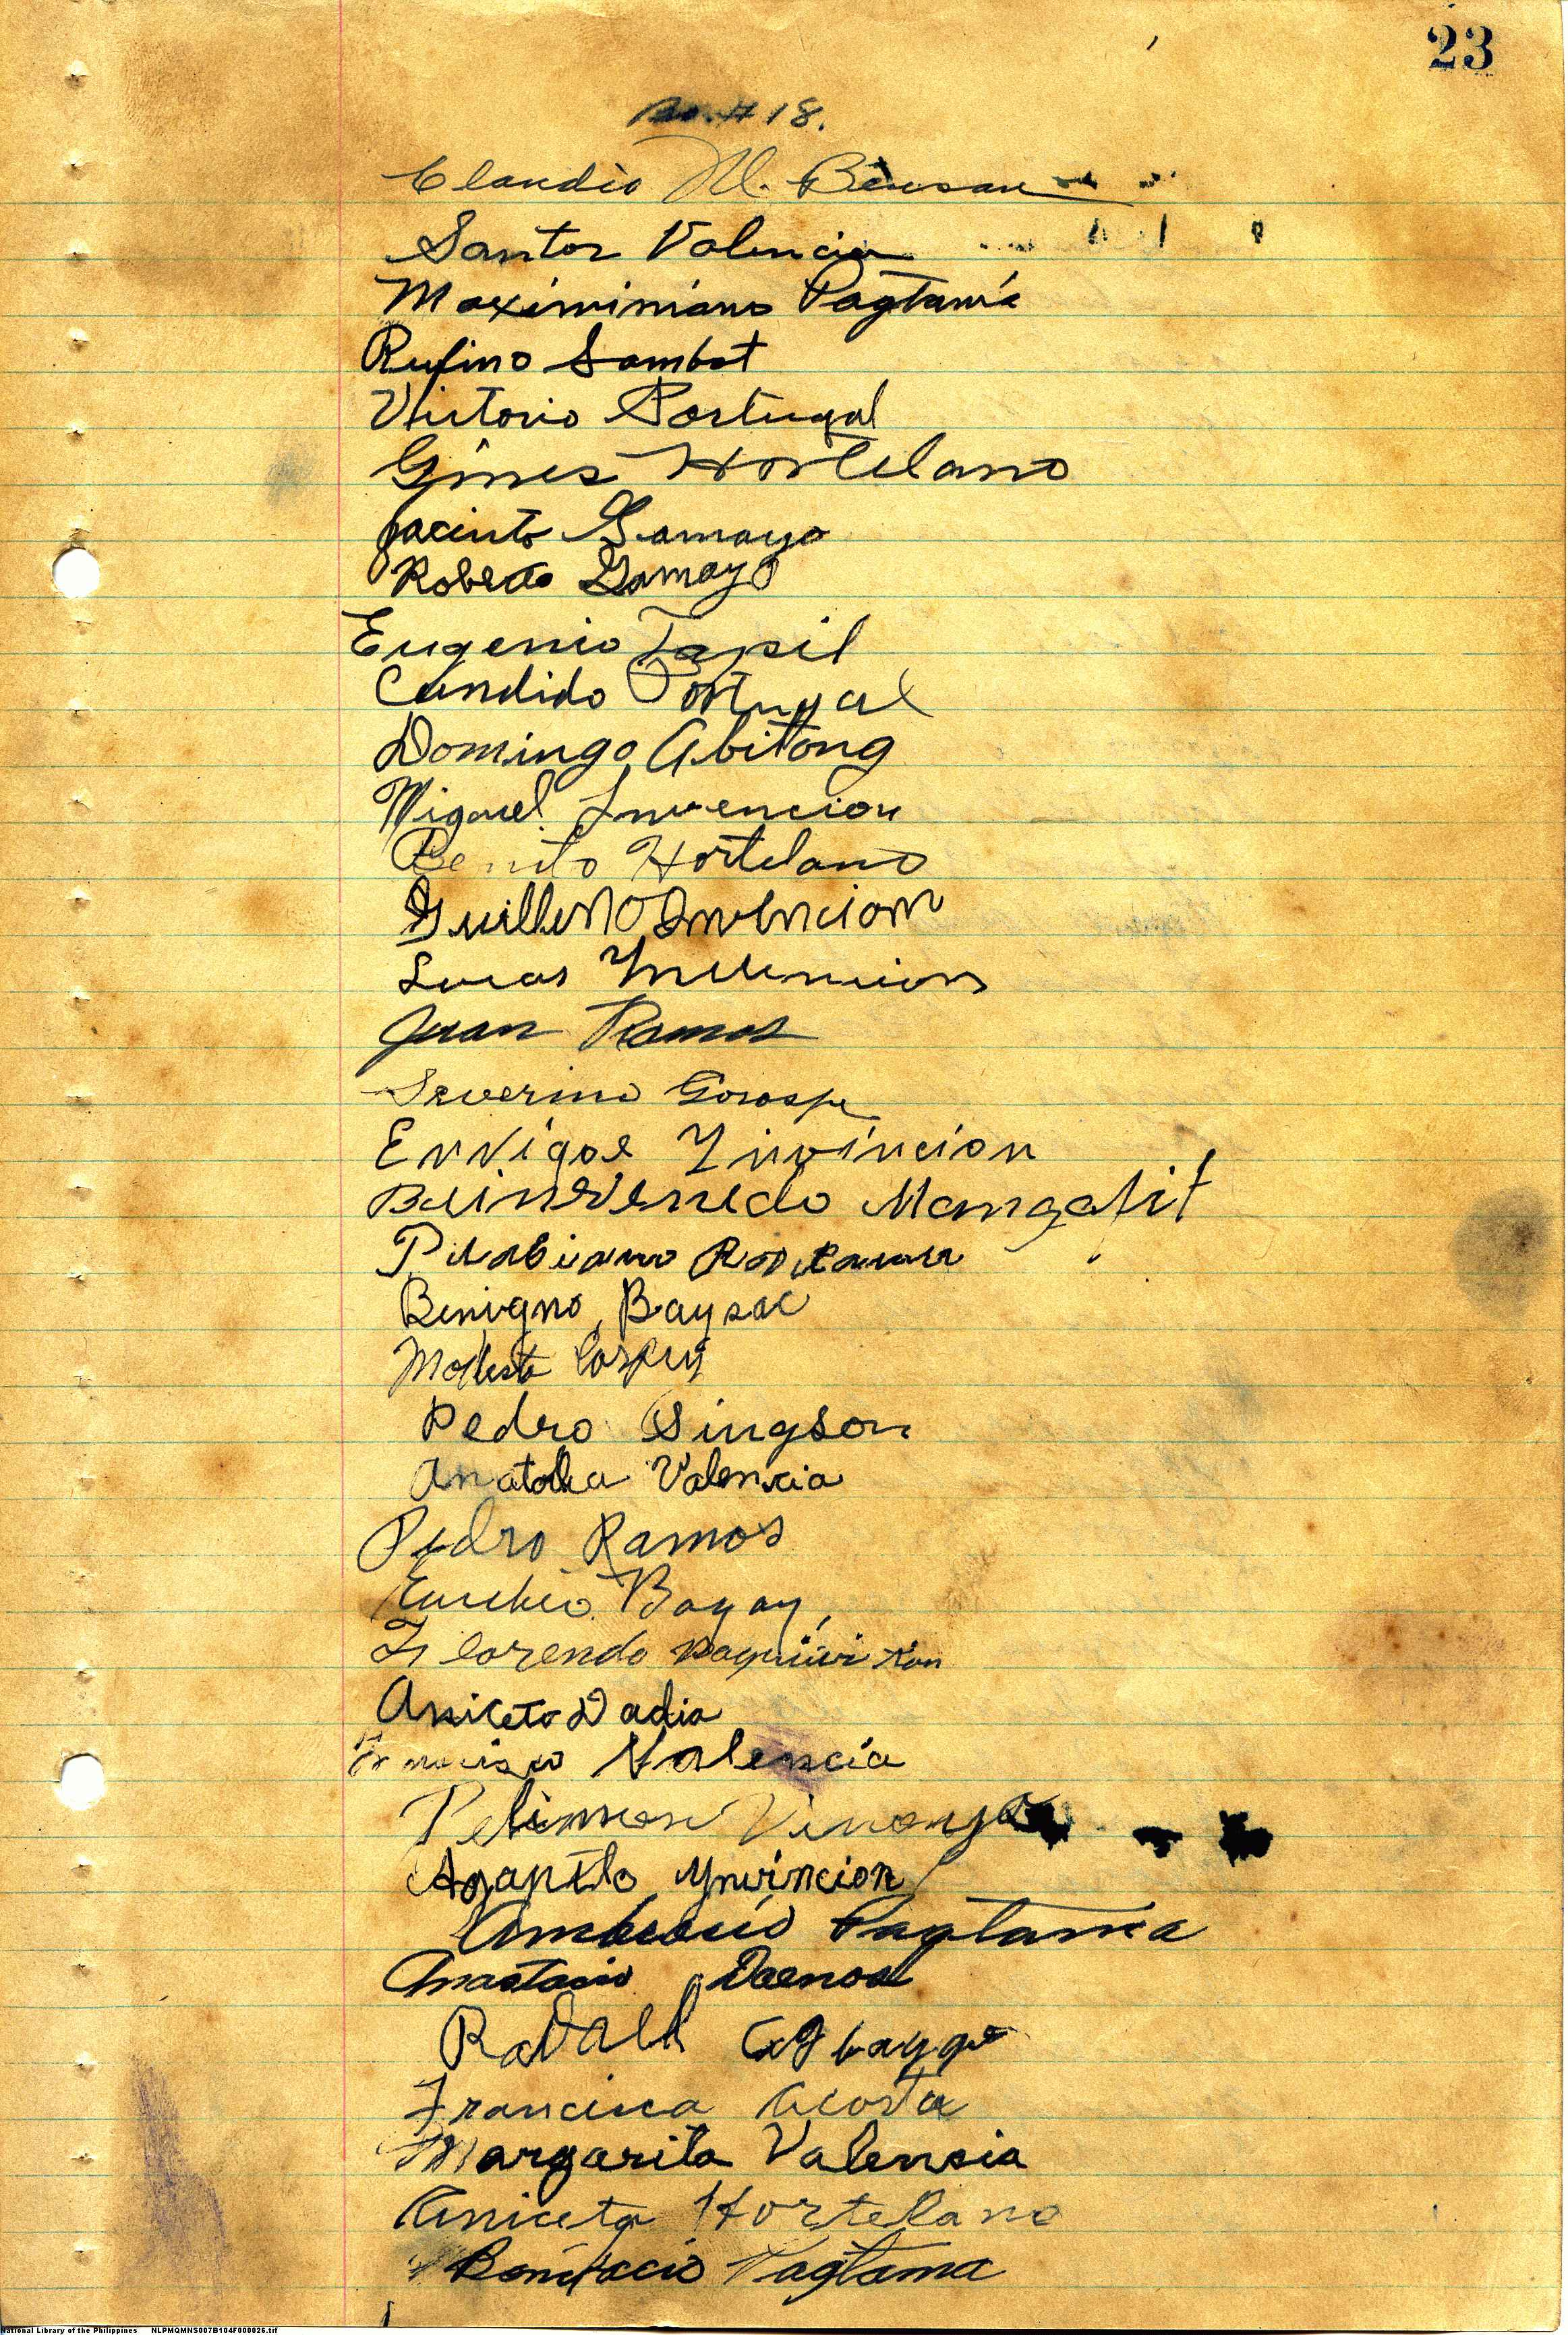 23
# 18.
Claudio M. Bensan
Santos Valencia
Maximiniano Pagtama
Rufino Sambot
Victorio Portugal
Gines Hortelano
Jacinto Gamayo
Roberto Gamayo
Eugenio Tapil
Candido Portugal
Domingo Abitong
Miguel Invencion
Benito Hortelano
Guillermo Invencion
Lucas Invencion
Juan Ramos
Severino Gorospe
Enrique Yinvincion
Beinvenedo Mangapit
Benigno Baysac
Modesto Corpus
Pedro Singson
Anatolia Valencia
Pedro Ramos
Eusebio Bagay,
Florendo
Aniceto Dadia
Francisco Valencia
Agapito Ynvincion
Ambrocio Pagtama
Anastacio
Rafael Agbaygo
Francisca Acosta
Margarita Valencia
Aniceta Hortelano
Bonifacio Pagtama
National Library of the Philippines NLPMQMNS007B104F000026.tif